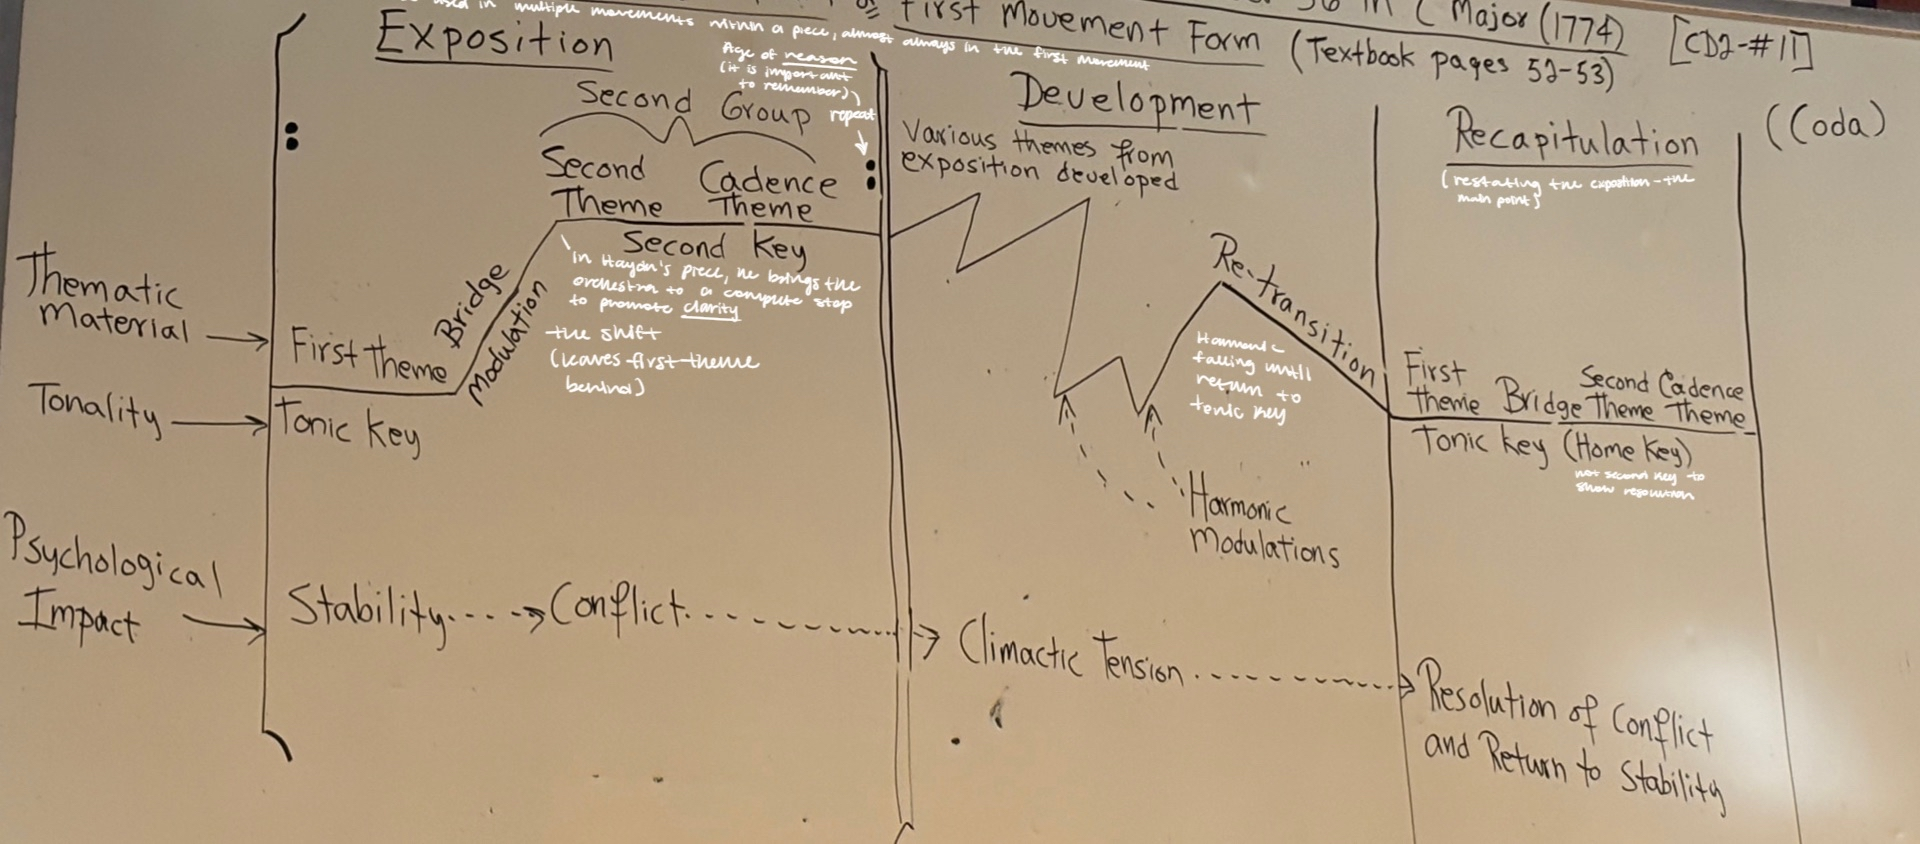 used in multiple movements within a piece, almost always in the first movement
First Movement Form
in C Major (1774)
(Textbook pages 52-53)
[CD2-#11]
Exposition
Age of reason
(it is important
to remember))
repeat
Second Group
Second
Theme
Cadence
Theme
Second Key
In Haydn's piece, he brings the
orchestra to a complete stop
to promote clarity
the shift
(leaves first theme
behind)
Bridge
Modulation
Thematic
Material
First theme
Tonality
Tonic Key
Psychological
Impact
Stability
Conflict
Development
Various themes from
exposition developed
Re-transition
Harmonic
falling until
return to
tonic key
Harmonic
Modulations
Climactic Tension
Recapitulation
(restating the exposition - the
main point)
First
theme
Bridge
Second
Theme
Cadence
Theme
Tonic Key (Home Key)
not second key to
show resolution
Resolution of Conflict
and Return to Stability
(Coda)